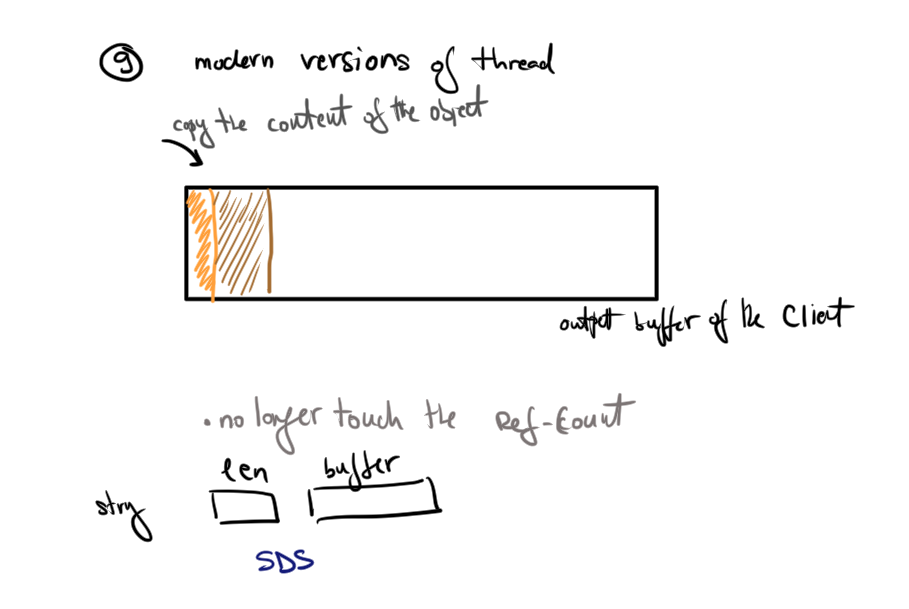 9 modern versions of thread
copy the content of the object
output buffer of the Client
• no longer touch the Ref-Count
len buffer
SDS